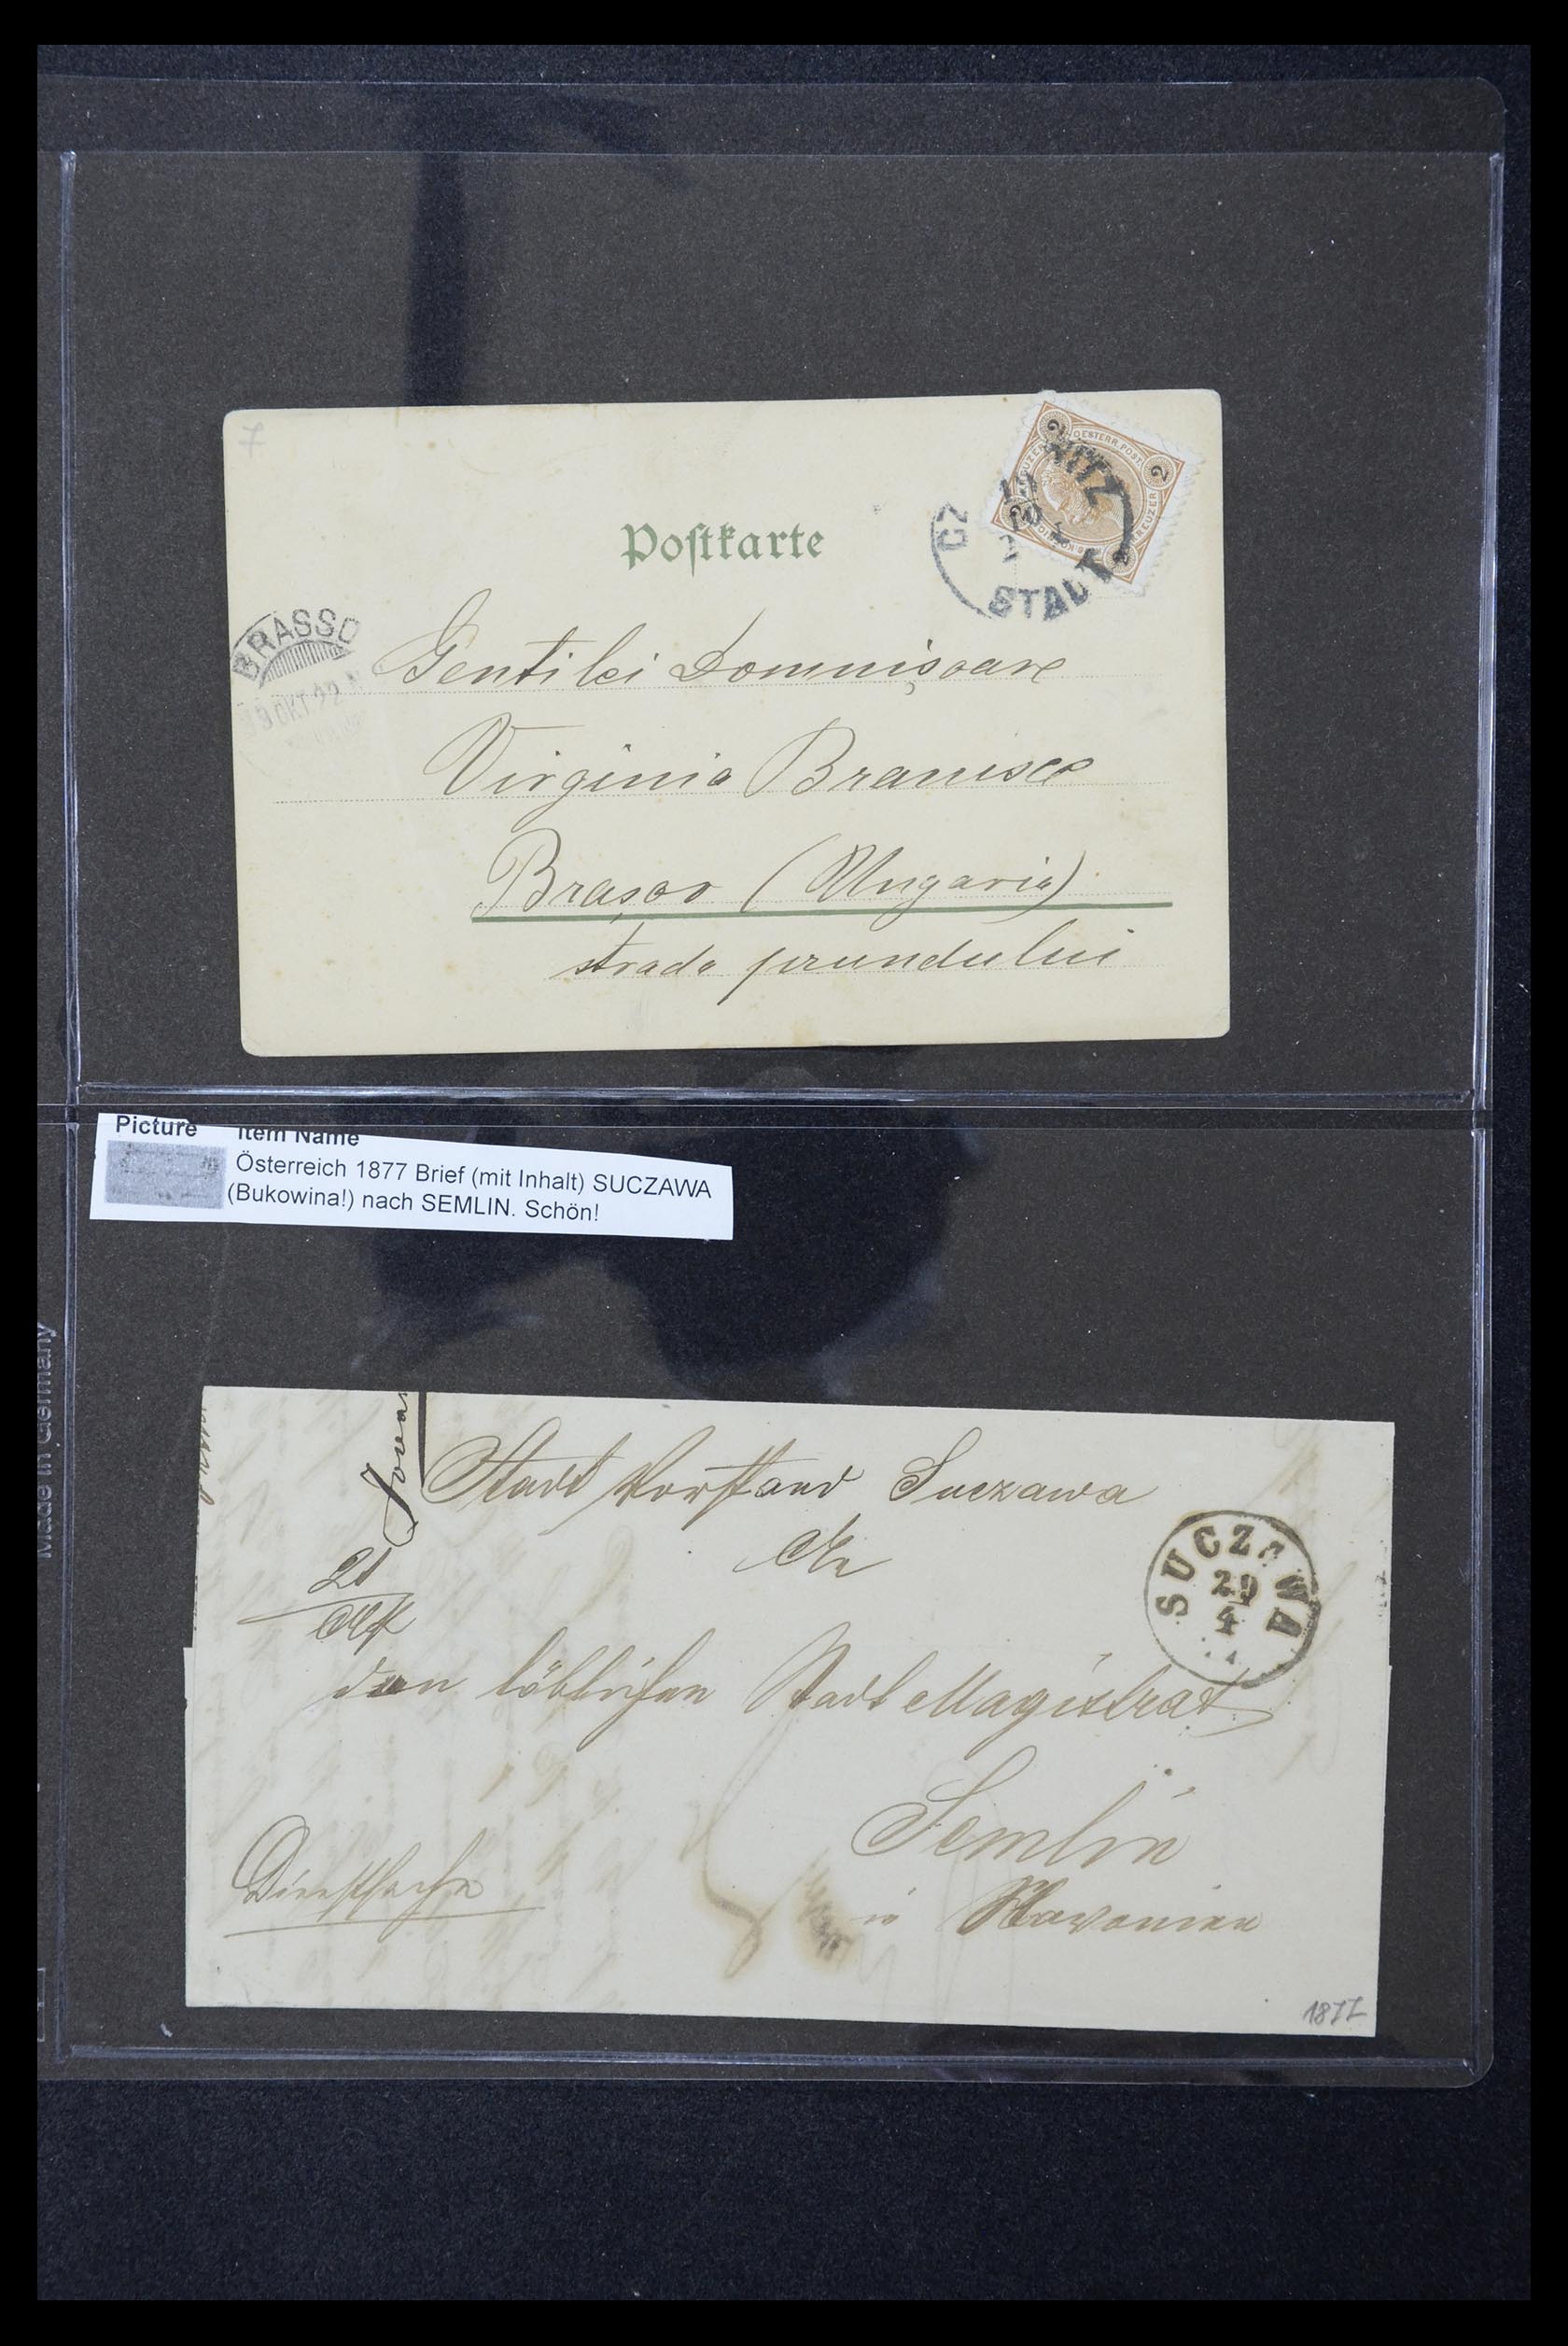 7
Postkarte
2
2
OESTERR.POST.
KREUZER
CZ
NITZ
STADT
BRASSO
9 OKT 22
Gentilei Domnișoare
Virginia Branisce
Brașov (Ungaria)
strada prundului
Picture Item Name
Österreich 1877 Brief (mit Inhalt) SUCZAWA
(Bukowina!) nach SEMLIN. Schön!
Made in Germany
Stadt Vorstand Suczawa
An
SUCZAWA
29
4
den löblichen Stadt Magistrat
Semlin
Dienstsache
in Slavonien
1877